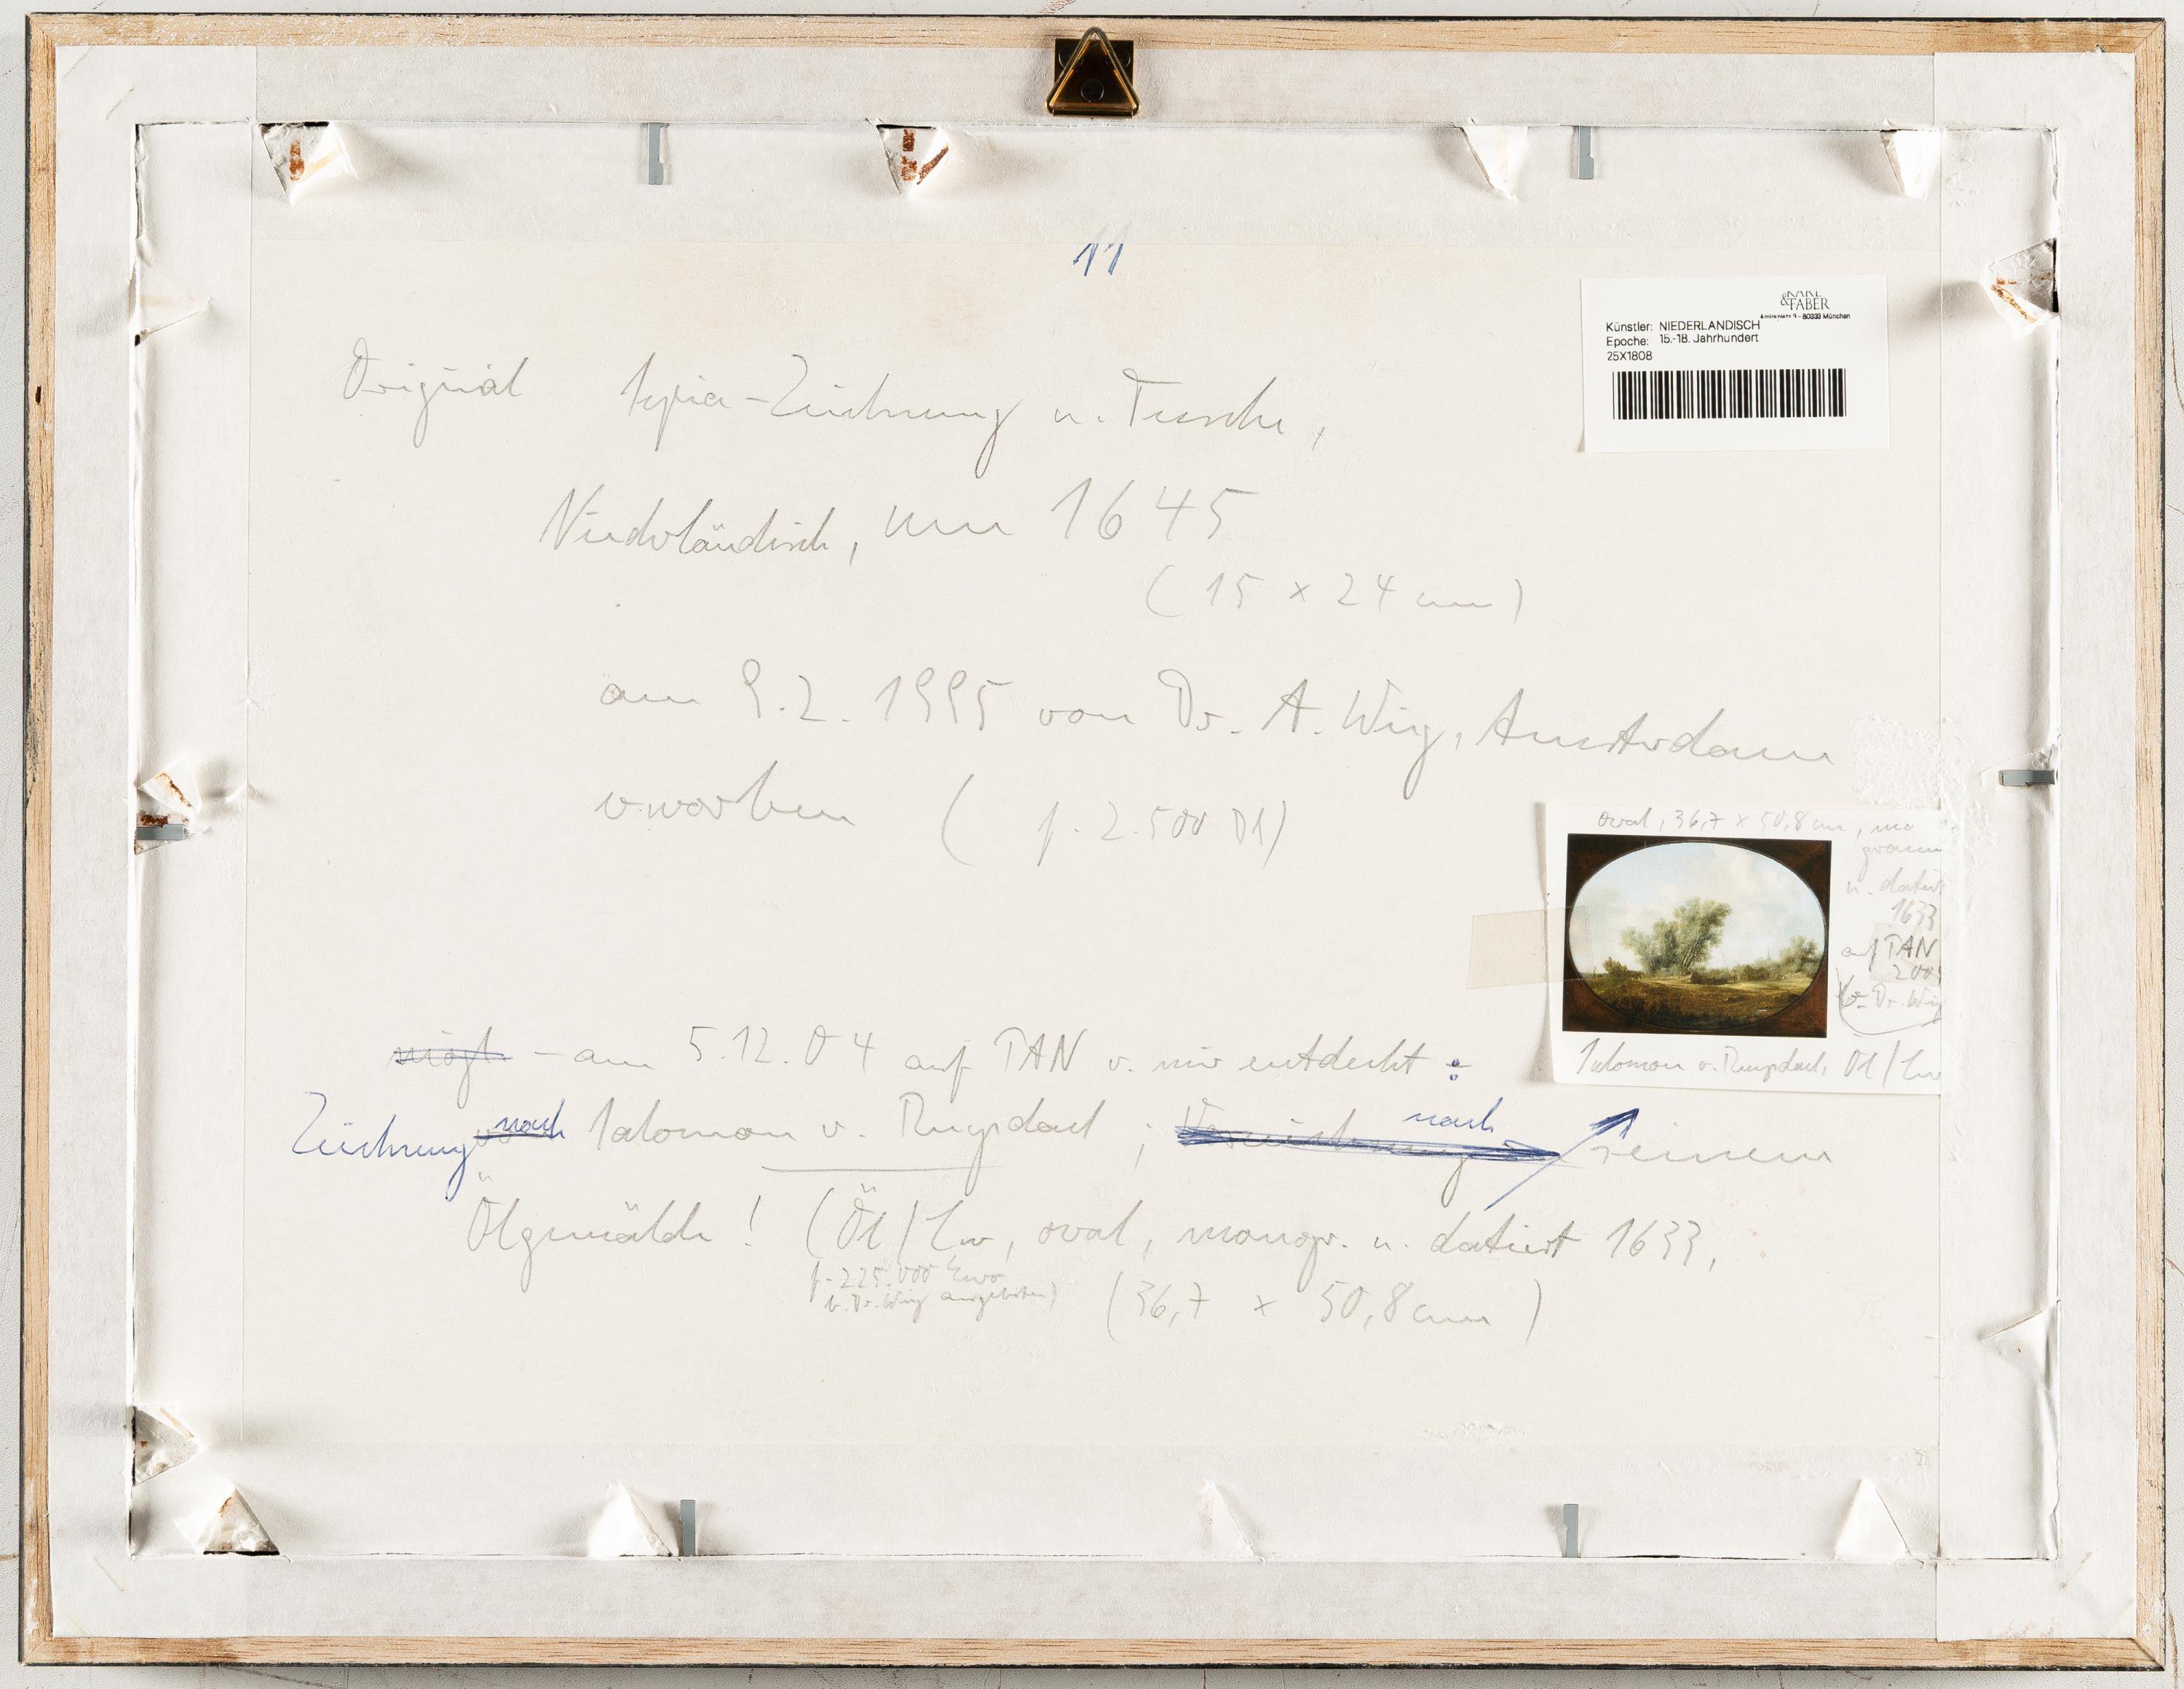 11
KARL
& FABER
Amiraplatz 3 - 80333 München
Künstler: NIEDERLANDISCH
Epoche: 15.-18. Jahrhundert
25X1808
Original Sepia-Zeichnung u. Tusche,
Niederländisch, um 1645
(15 x 24 cm)
am 9.2.1995 von Dr. A. Wieg, Amsterdam
erworben ( f. 2.500 Dl)
oval, 36,7 x 50,8 cm, mo
gramm
u. datiert
1633
auf PAN
Dr. Wieg
Salomon v. Ruysdael, Öl/Lw
mögl. - am 5.12.04 auf PAN v. mir entdeckt:
Zeichnung nach Salomon v. Ruysdael; nach seinem
Ölgemälde! (Öl/Lw, oval, monogr. u. datiert 1633,
f. 225.000 Euro
v. Dr. Wieg angeboten)
(36,7 x 50,8 cm)